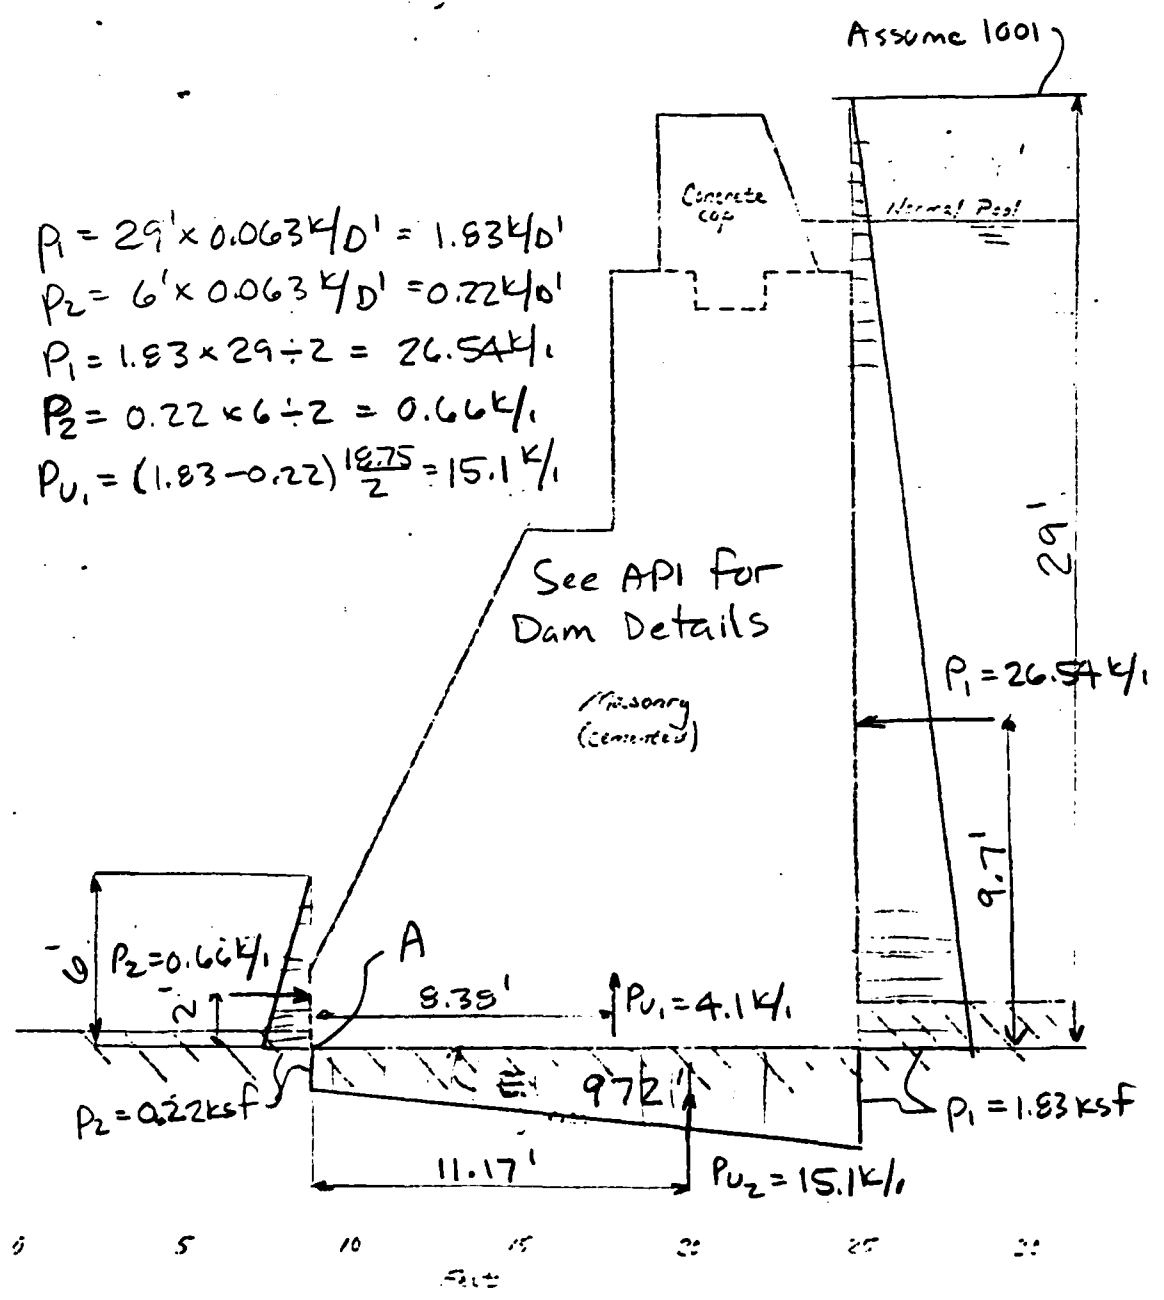 Assume 1001
Concrete
cap
Normal Pool
p₁ = 29' × 0.063 k/□' = 1.83 k/□'
p₂ = 6' × 0.063 k/□' = 0.22 k/□'
P₁ = 1.83 × 29 ÷ 2 = 26.54 k/,
P₂ = 0.22 × 6 ÷ 2 = 0.66 k/,
PU₁ = (1.83 - 0.22) 18.75/2 = 15.1 k/,
29'
See API for
Dam Details
Masonry
(cemented)
P₁ = 26.54 k/,
9.7'
6'
P₂ = 0.66 k/,
2'
A
8.38'
PU₁ = 4.1 k/,
P₂ = 0.22 ksf
El 972'
P₁ = 1.83 ksf
11.17'
PU₂ = 15.1 k/,
0 5 10 15 20 25 30
Feet